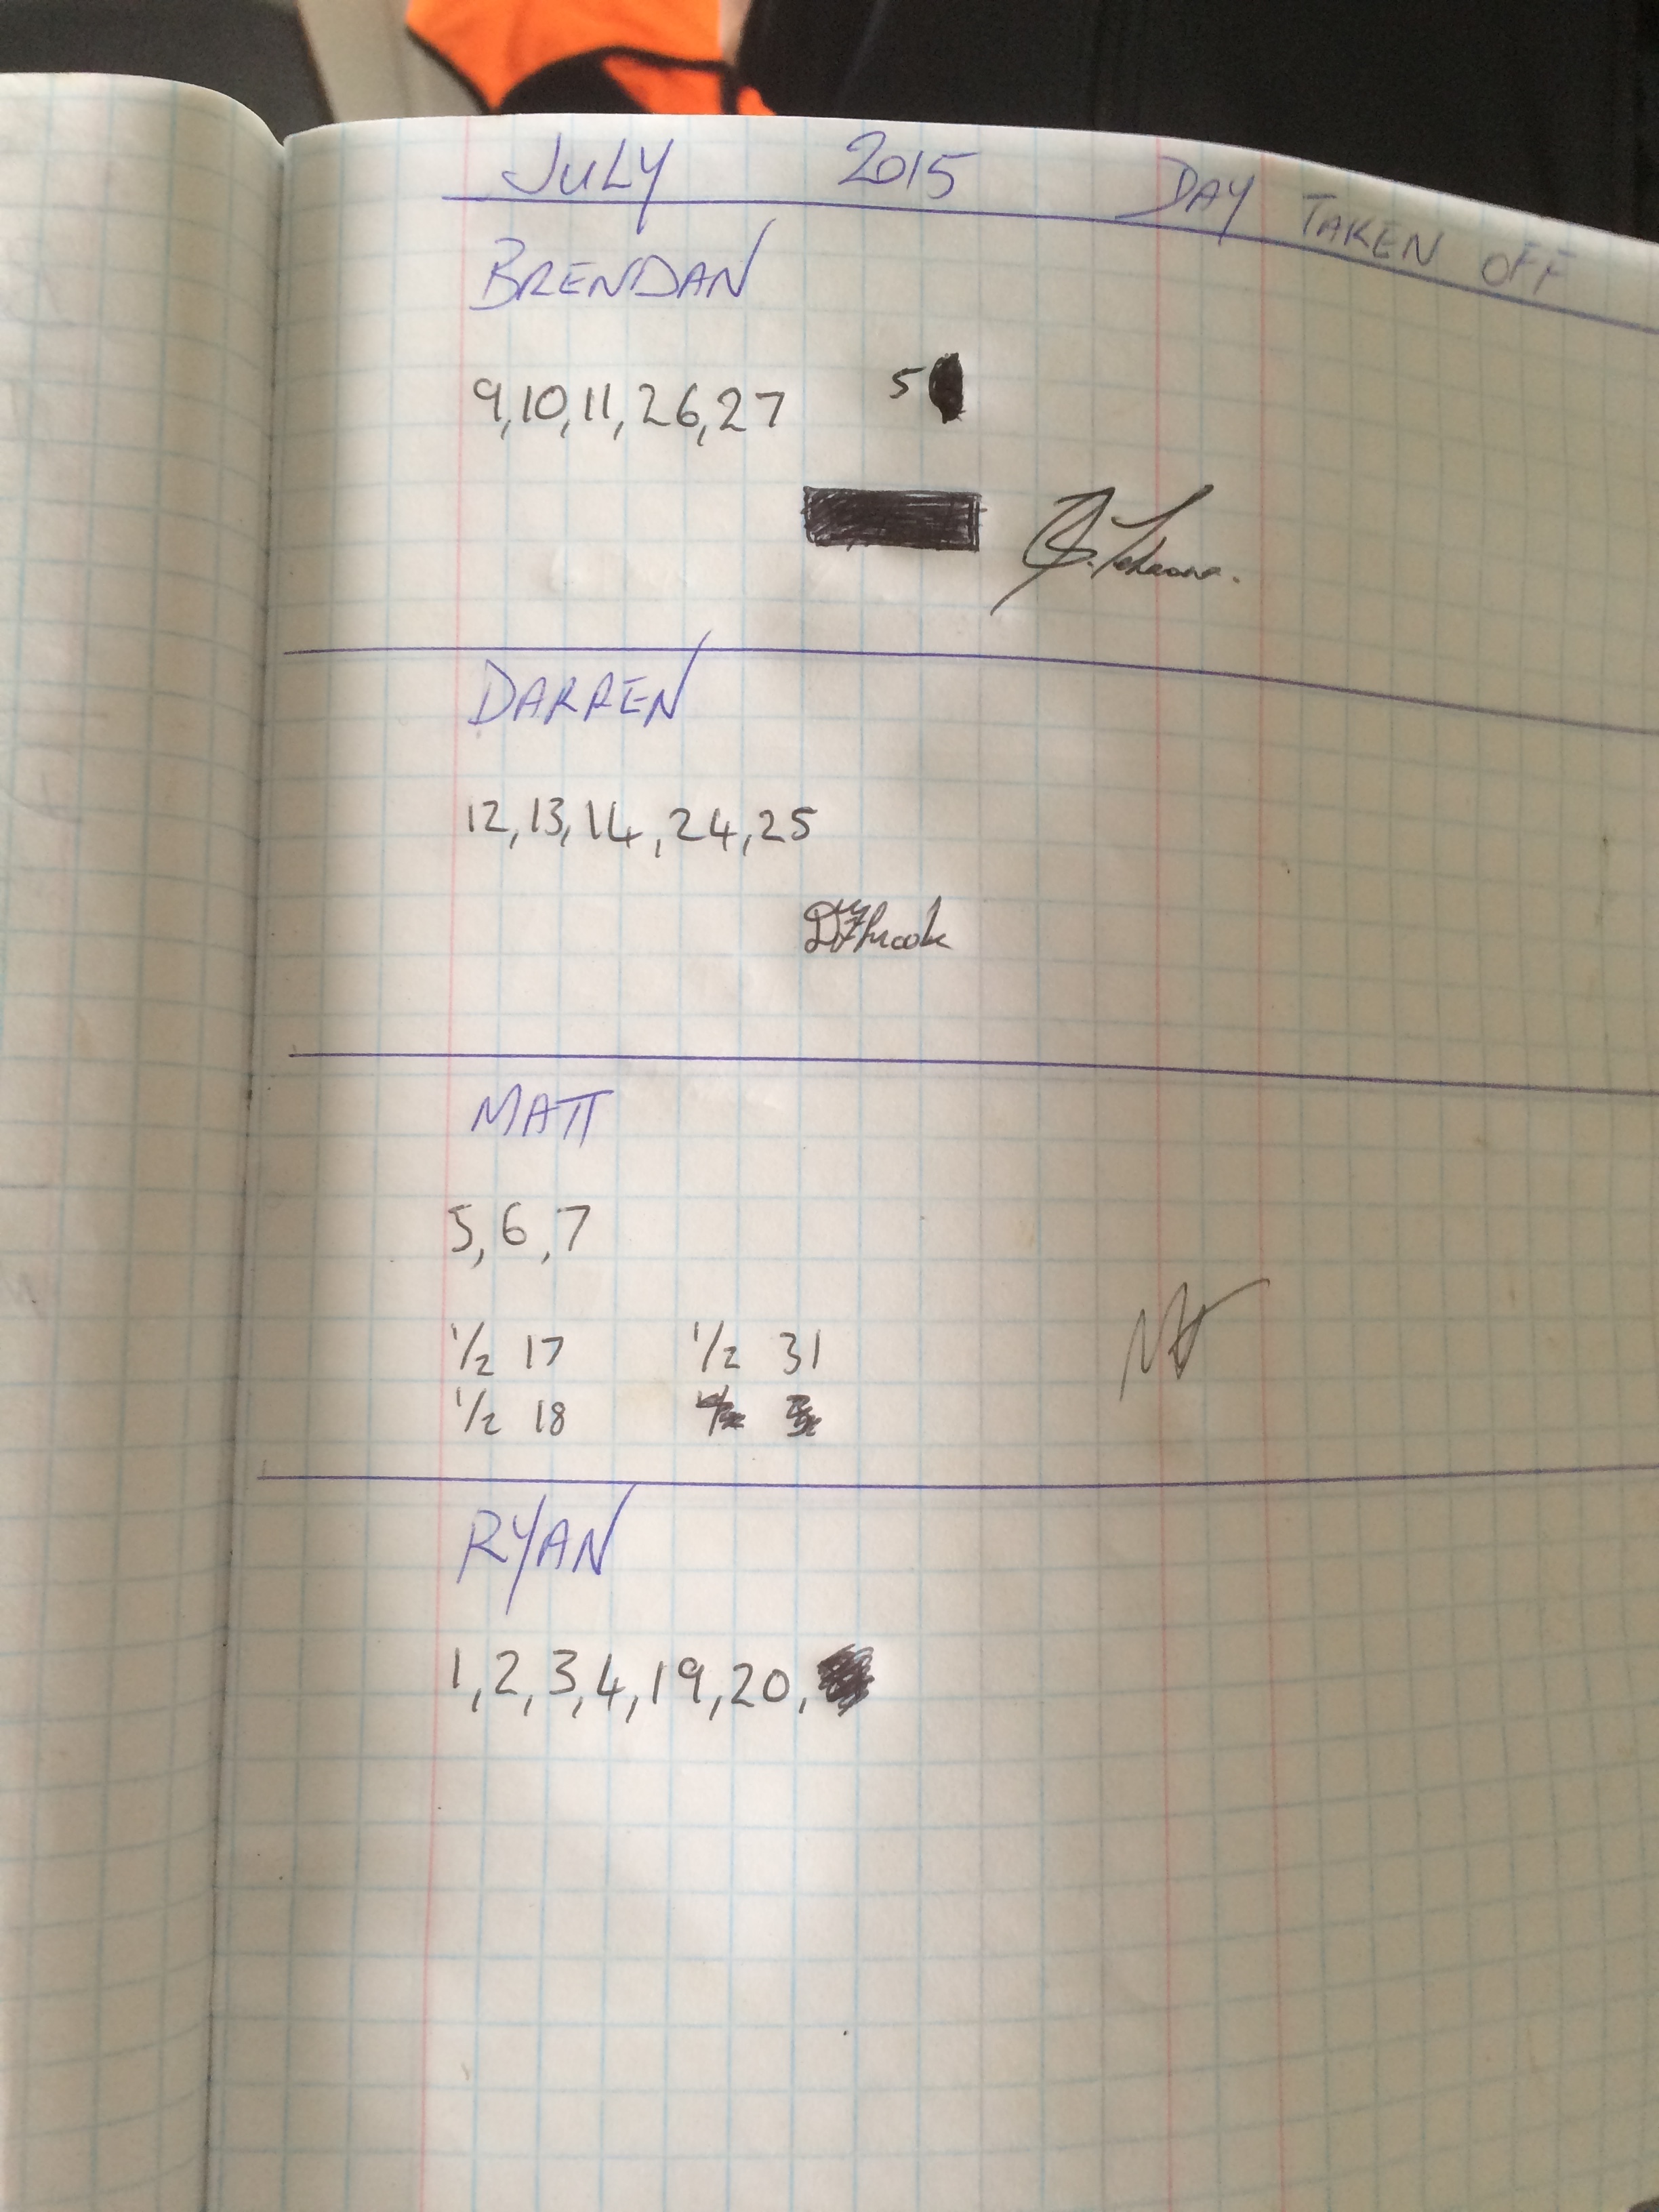 JULY 2015 DAY TAKEN OFF
BRENDAN
9,10,11,26,27 5
DARREN
12,13,14,24,25
MATT
5,6,7
1/2 17 1/2 31
1/2 18
RYAN
1,2,3,4,19,20,